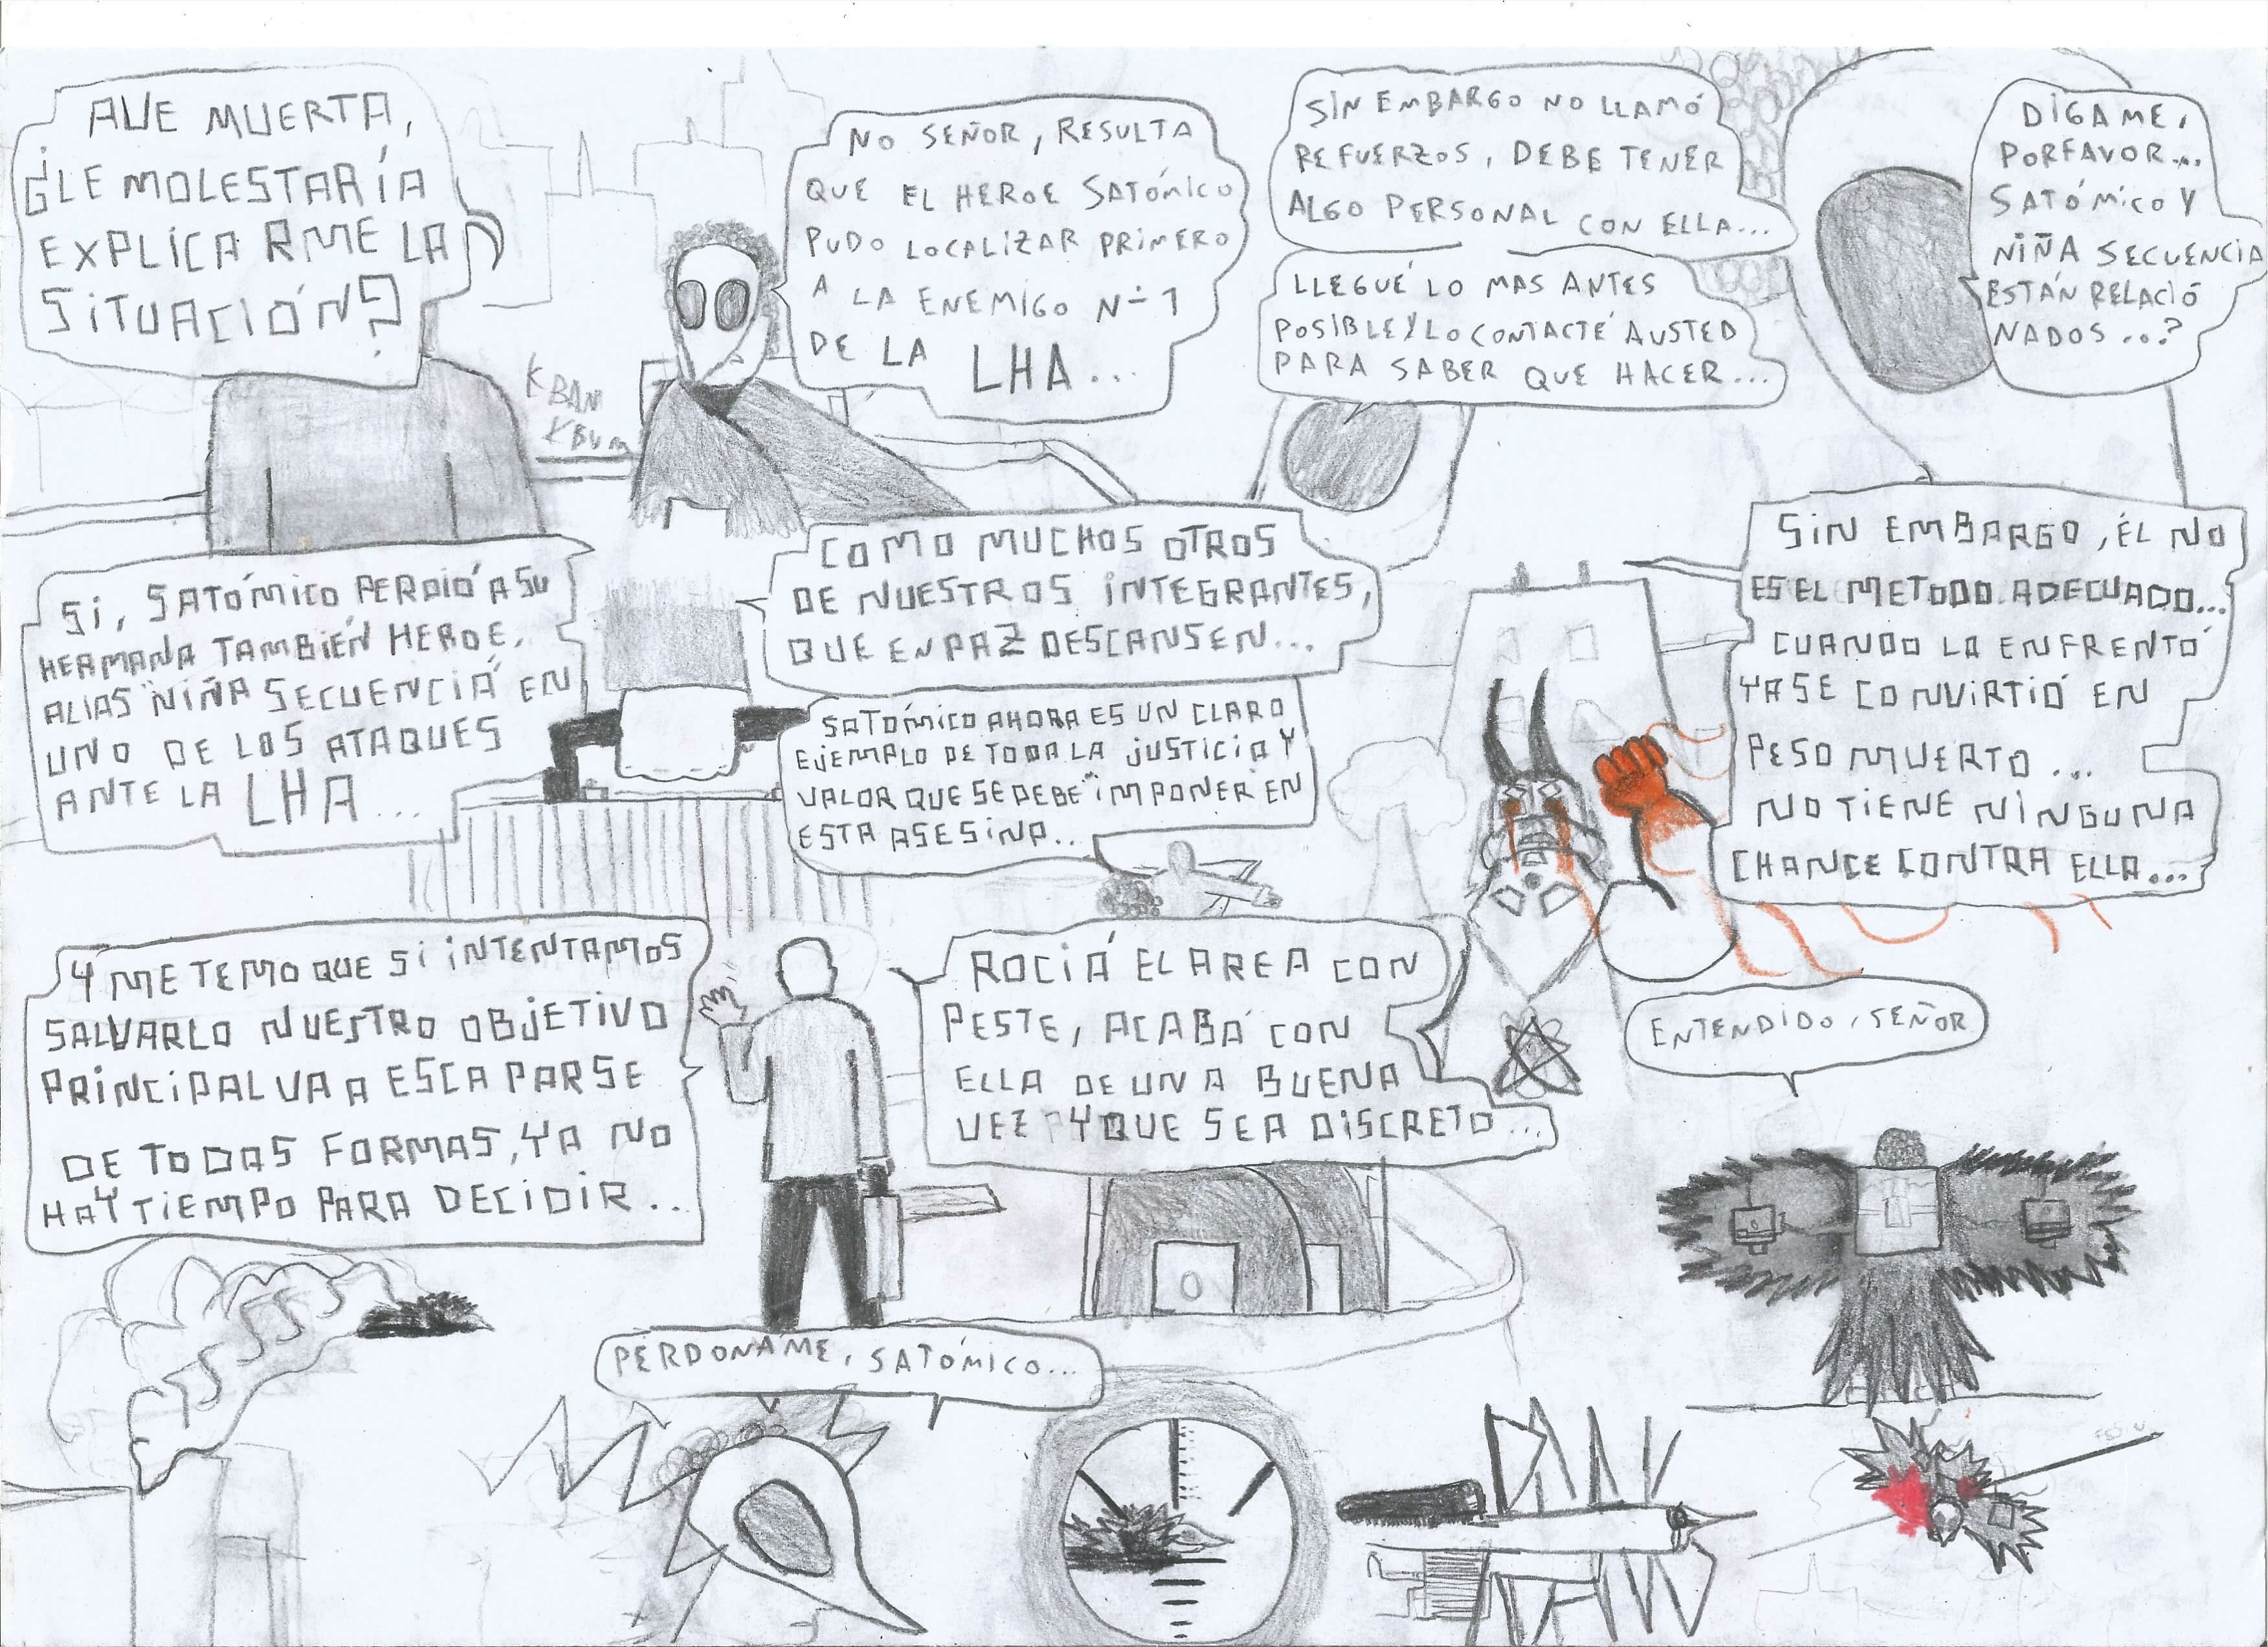 AVE MUERTA,
¿LE MOLESTARÍA
EXPLICARME LA
SITUACIÓN?
KBAN
KBUM
NO SEÑOR, RESULTA
QUE EL HEROE SATÓMICO
PUDO LOCALIZAR PRIMERO
A LA ENEMIGO N-1
DE LA LHA...
SIN EMBARGO NO LLAMÓ
REFUERZOS, DEBE TENER
ALGO PERSONAL CON ELLA...
LLEGUÉ LO MAS ANTES
POSIBLE Y LO CONTACTÉ A USTED
PARA SABER QUE HACER...
DÍGAME,
PORFAVOR...
SATÓMICO Y
NIÑA SECUENCIA
ESTÁN RELACIÓ
NADOS...?
SI, SATÓMICO PERDIÓ A SU
HERMANA TAMBIÉN HEROE,
ALIAS "NIÑA SECUENCIA" EN
UNO DE LOS ATAQUES
ANTE LA LHA...
COMO MUCHOS OTROS
DE NUESTROS INTEGRANTES,
QUE EN PAZ DESCANSEN...
SATÓMICO AHORA ES UN CLARO
EJEMPLO DE TODA LA JUSTICIA Y
VALOR QUE SE DEBE IMPONER EN
ESTA ASESINA...
SIN EMBARGO, ÉL NO
ES EL METODO ADECUADO...
CUANDO LA ENFRENTÓ
YA SE CONVIRTIÓ EN
PESO MUERTO...
NO TIENE NINGUNA
CHANCE CONTRA ELLA...
Y ME TEMO QUE SI INTENTAMOS
SALVARLO NUESTRO OBJETIVO
PRINCIPAL VA A ESCAPARSE
DE TODAS FORMAS, YA NO
HAY TIEMPO PARA DECIDIR...
ROCIÁ EL AREA CON
PESTE, ACABÁ CON
ELLA DE UNA BUENA
VEZ Y QUE SEA DISCRETO...
ENTENDIDO, SEÑOR
PERDONAME, SATÓMICO...